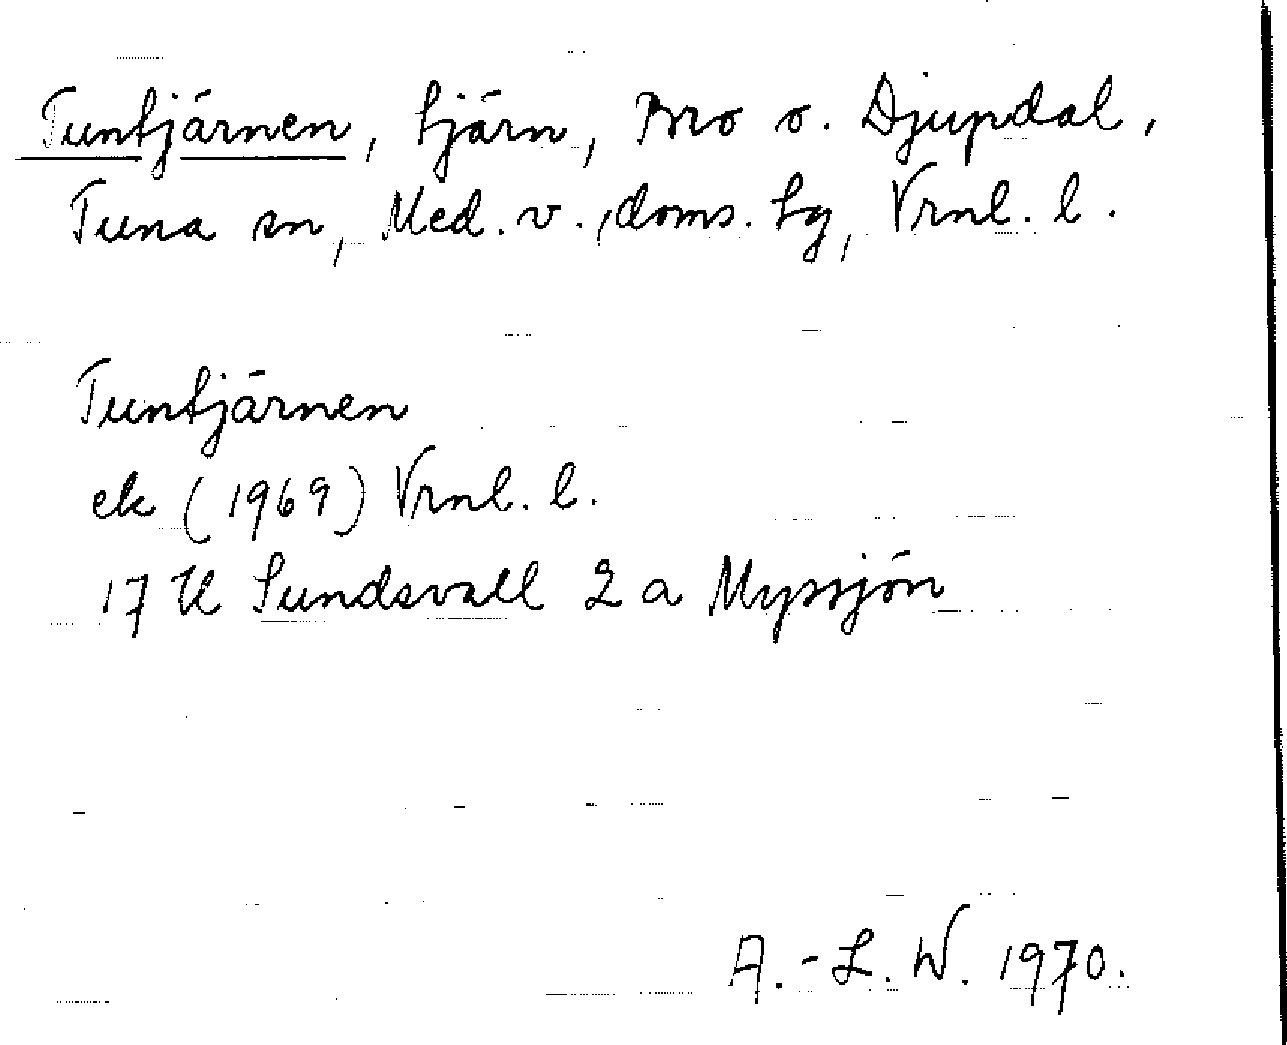 Tuntjärnen, tjärn, Bro o. Djupdal,
Tuna sn, Med. v., doms. tg, Vrnl. l.
Tuntjärnen
ek (1969) Vrnl. l.
17 H Sundsvall 2 a Myssjön
A.-L. W. 1970.